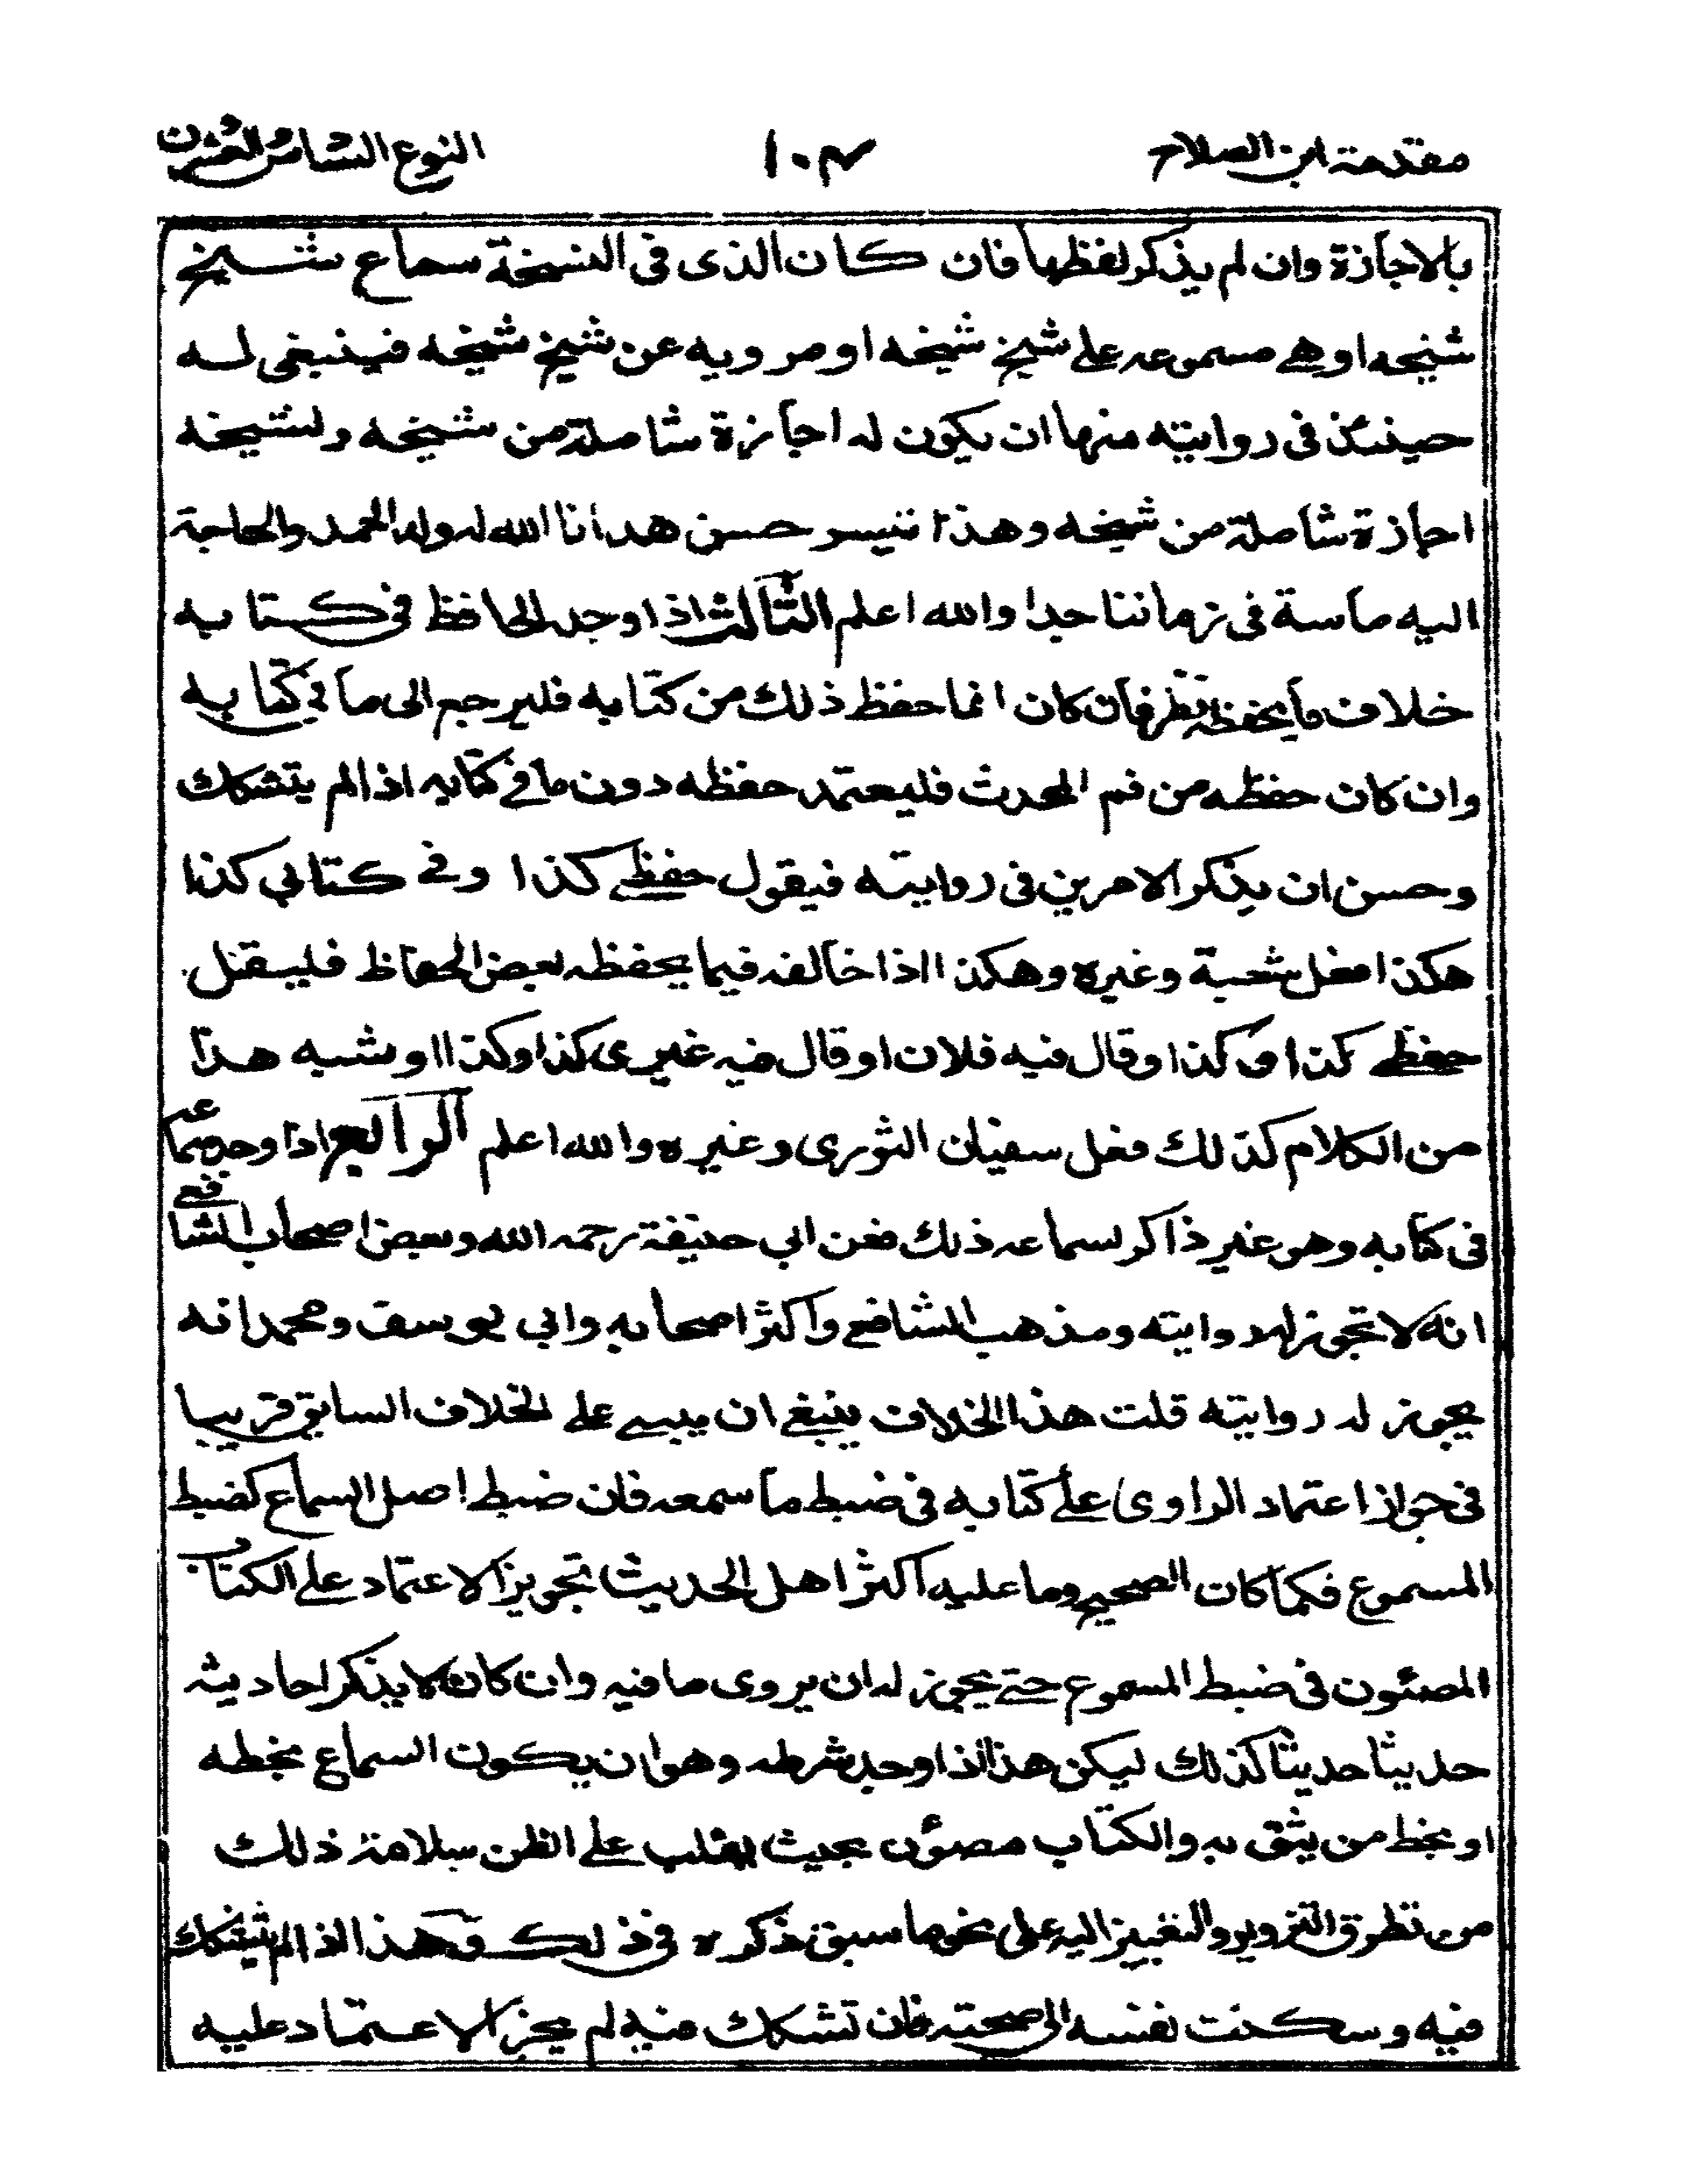 مقدمة ابن الصلاح ١٠٣ النوع السادس والعشرون
بالاجازة وان لم يذكر لفظها فان كان الذى فى النسخة سماع شيخ
شيخه او هى مسموعه على شيخ شيخه او مرويه عن شيخ شيخه فينبغى له
حينئذ فى روايته منها ان يكون له اجازة شاملة من شيخه ولشيخه
اجازة شاملة من شيخه وهذا تيسر حسن هدانا الله له وله الحمد والحاجة
اليه ماسة فى زماننا جدا والله اعلم الثالث اذا وجد الحافظ فى كتابه
خلاف ما يحفظه نظر فان كان انما حفظ ذلك من كتابه فليرجع الى ما فى كتابه
وان كان حفظه من فم المحدث فليعتمد حفظه دون ما فى كتابه اذا لم يتشكك
وحسن ان يذكر الامرين فى روايته فيقول حفظى كذا وفى كتابى كذا
هكذا فعل شعبة وغيره وهكذا اذا خالفه فيما يحفظه بعض الحفاظ فليقل
حفظى كذا وكذا وقال فيه فلان او قال فيه غيرى كذا وكذا او شبه هذا
من الكلام كذلك فعل سفيان الثورى وغيره والله اعلم الرابع اذا وجد سماعه
فى كتابه وهو غير ذاكر لسماعه ذلك فعن ابى حنيفة رحمه الله وبعض اصحاب الشافعى
انه لا تجوز له روايته ومذهب الشافعى واكثر اصحابه وابى يوسف ومحمد انه
يجوز له روايته قلت هذا الخلاف ينبغى ان يبنى على الخلاف السابق قريبا
فى جواز اعتماد الراوى على كتابه فى ضبط ما سمعه فان ضبط اصل السماع كضبط
المسموع فكما كان الصحيح وما عليه اكثر اهل الحديث تجويز الاعتماد على الكتاب
المصئون فى ضبط المسموع حتى يجوز له ان يروى ما فيه وان كان لا يذكر احاديثه
حديثا حديثا كذلك ليكن هذا اذا وجد شرطه وهو ان يكون السماع بخطه
او بخط من يثق به والكتاب مصئون بحيث يغلب على الظن سلامة ذلك
من تطرق التزوير والتغيير اليه على نحو ما سبق ذكره فى ذلك وهذا اذا لم يتشكك
فيه وسكنت نفسه الى صحته فان تشكك فيه لم يجز الاعتماد عليه